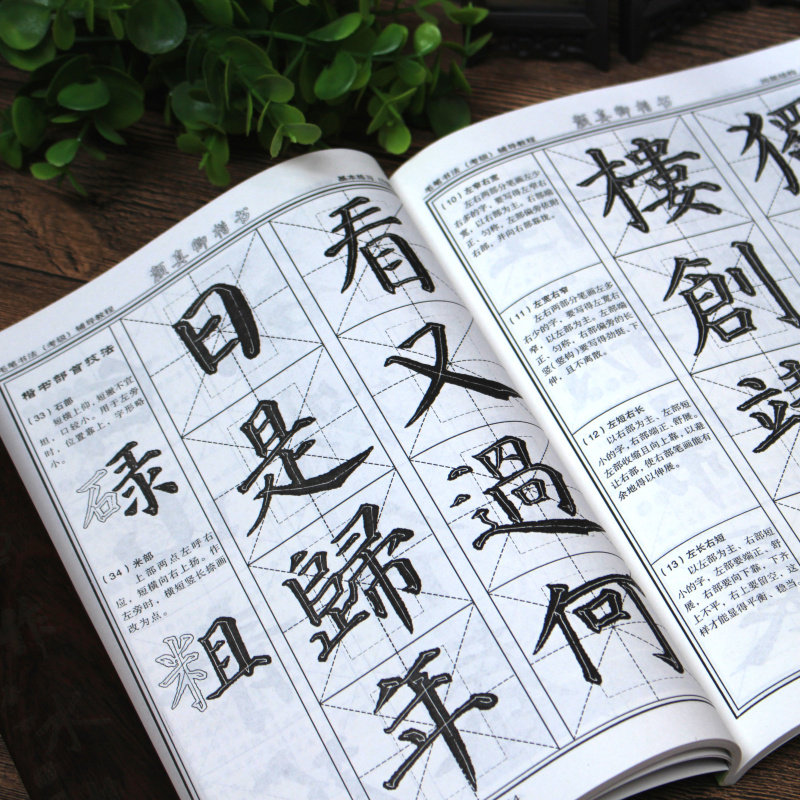 毛笔书法（考级）辅导教程
颜真卿楷书
基本练习
楷书部首技法
（33）石部
短横上仰，短撇不宜
坦，口较小。用于左旁
时，位置靠上，字形略
小。
碌
（34）米部
上部两点左呼右
应，短横向右上扬。作
左旁时，横短竖长捺画
改为点。
粗
看又過何
日是歸年
毛笔书法（考级）辅导教程
颜真卿楷书
（10）左窄右宽
左右两部分笔画左少
右多的字，要写得左窄右
宽，以右部为主。右部端
正、匀称，左部偏旁依附
右部，并向右部靠拢。
（11）左宽右窄
左右两部分笔画左多
右少的字，要写得左宽右
窄，以左部为主。左部端
正、匀称，右部偏旁的长
竖（竖钩）要写得劲挺、下
伸，且不离散。
（12）左短右长
以右部为主，左部短
小的字，右部端正、舒展。
左部收缩且向上靠，以避
让右部，使右部笔画能有
余地得以伸展。
（13）左长右短
以左部为主，右部短
小的字，左部要端正、舒
展，右部要向下靠，下齐
上不平，右上要留空，这
样才能显得平衡、稳当
樓獨
創